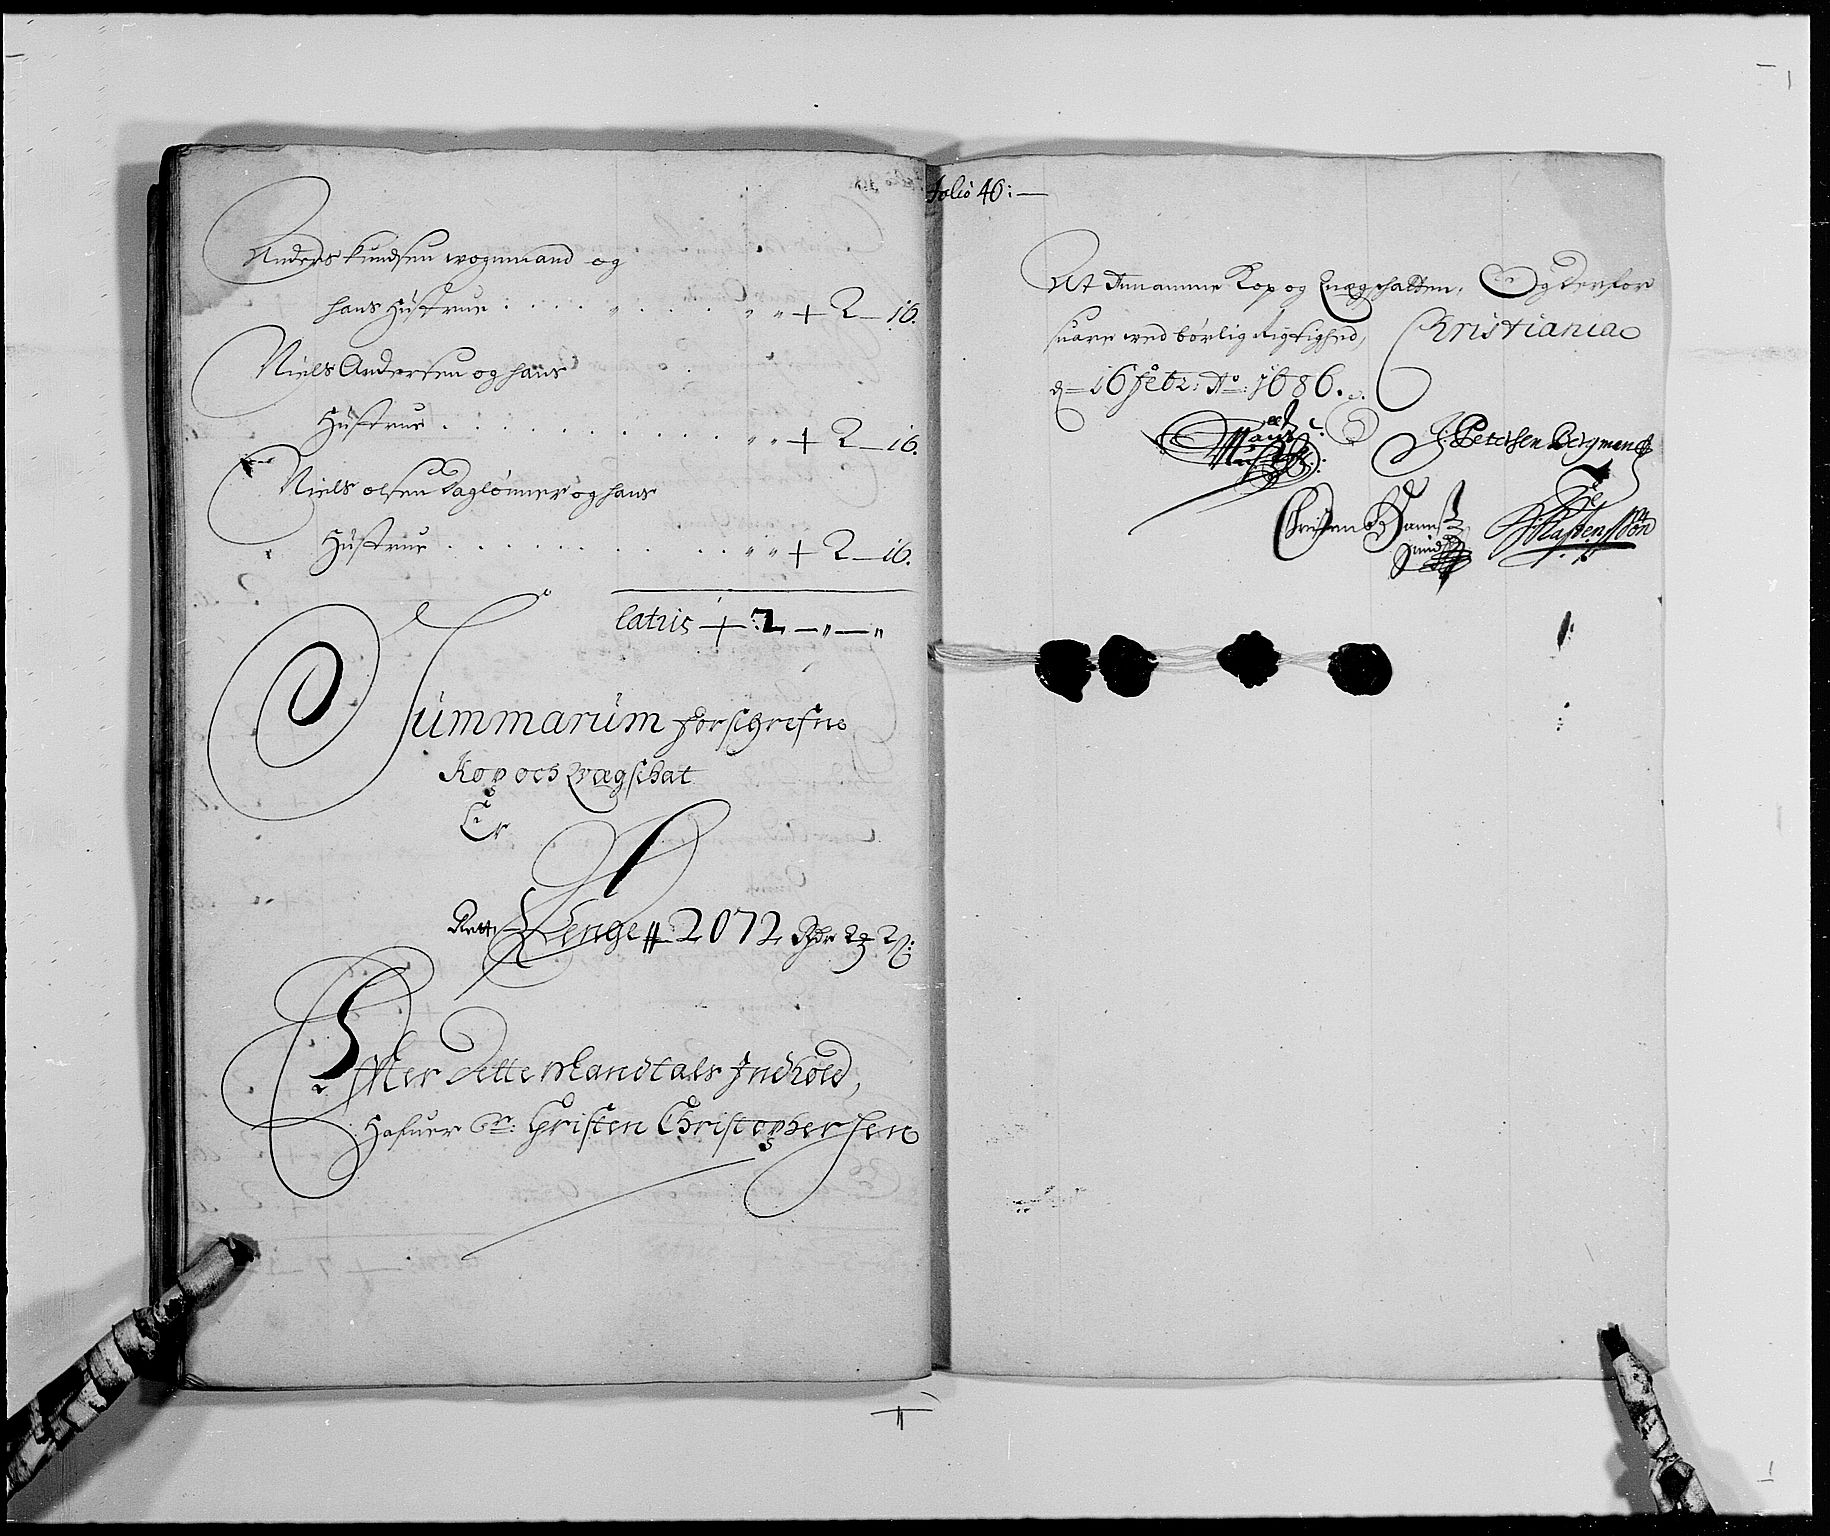 Anders knudsen wognmand og
hans Hústrue : . . . . „ . . . . „ „ + 2 — 16.
Niels Andersen og hans
Hústrue . . . . . . . . . . . „ „ + 2 — 16.
Niels olsen daglønner og hans
Hústrue . . . . . . . . . . „ „ + 2 — 16.
latus + 2 — „ — „
Súmmarúm forschrefne
Kop och qvægschat
Er
Rette Penge # 2072 Rdr 2 2
Effter dette Mandtals Indhold,
Hafuer Sr: Christen Christophersen
folio 46: —
At Annamme Kop og Quægschatten, Og derfor
suare med børlig Rigtighed, Christiania
d — 16 febr: Ao: 1686.
Petersen Bergman
Christen